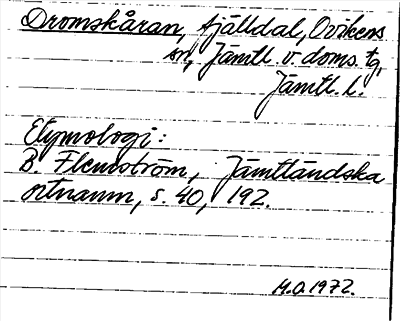 Dromskåran, fjälldal, Ovikens
sn, Jämtl. v. doms. tg,
Jämtl. l.
Etymologi:
B. Flemström, Jämtländska
ortnamn, s. 40, 192.
M.O.1972.